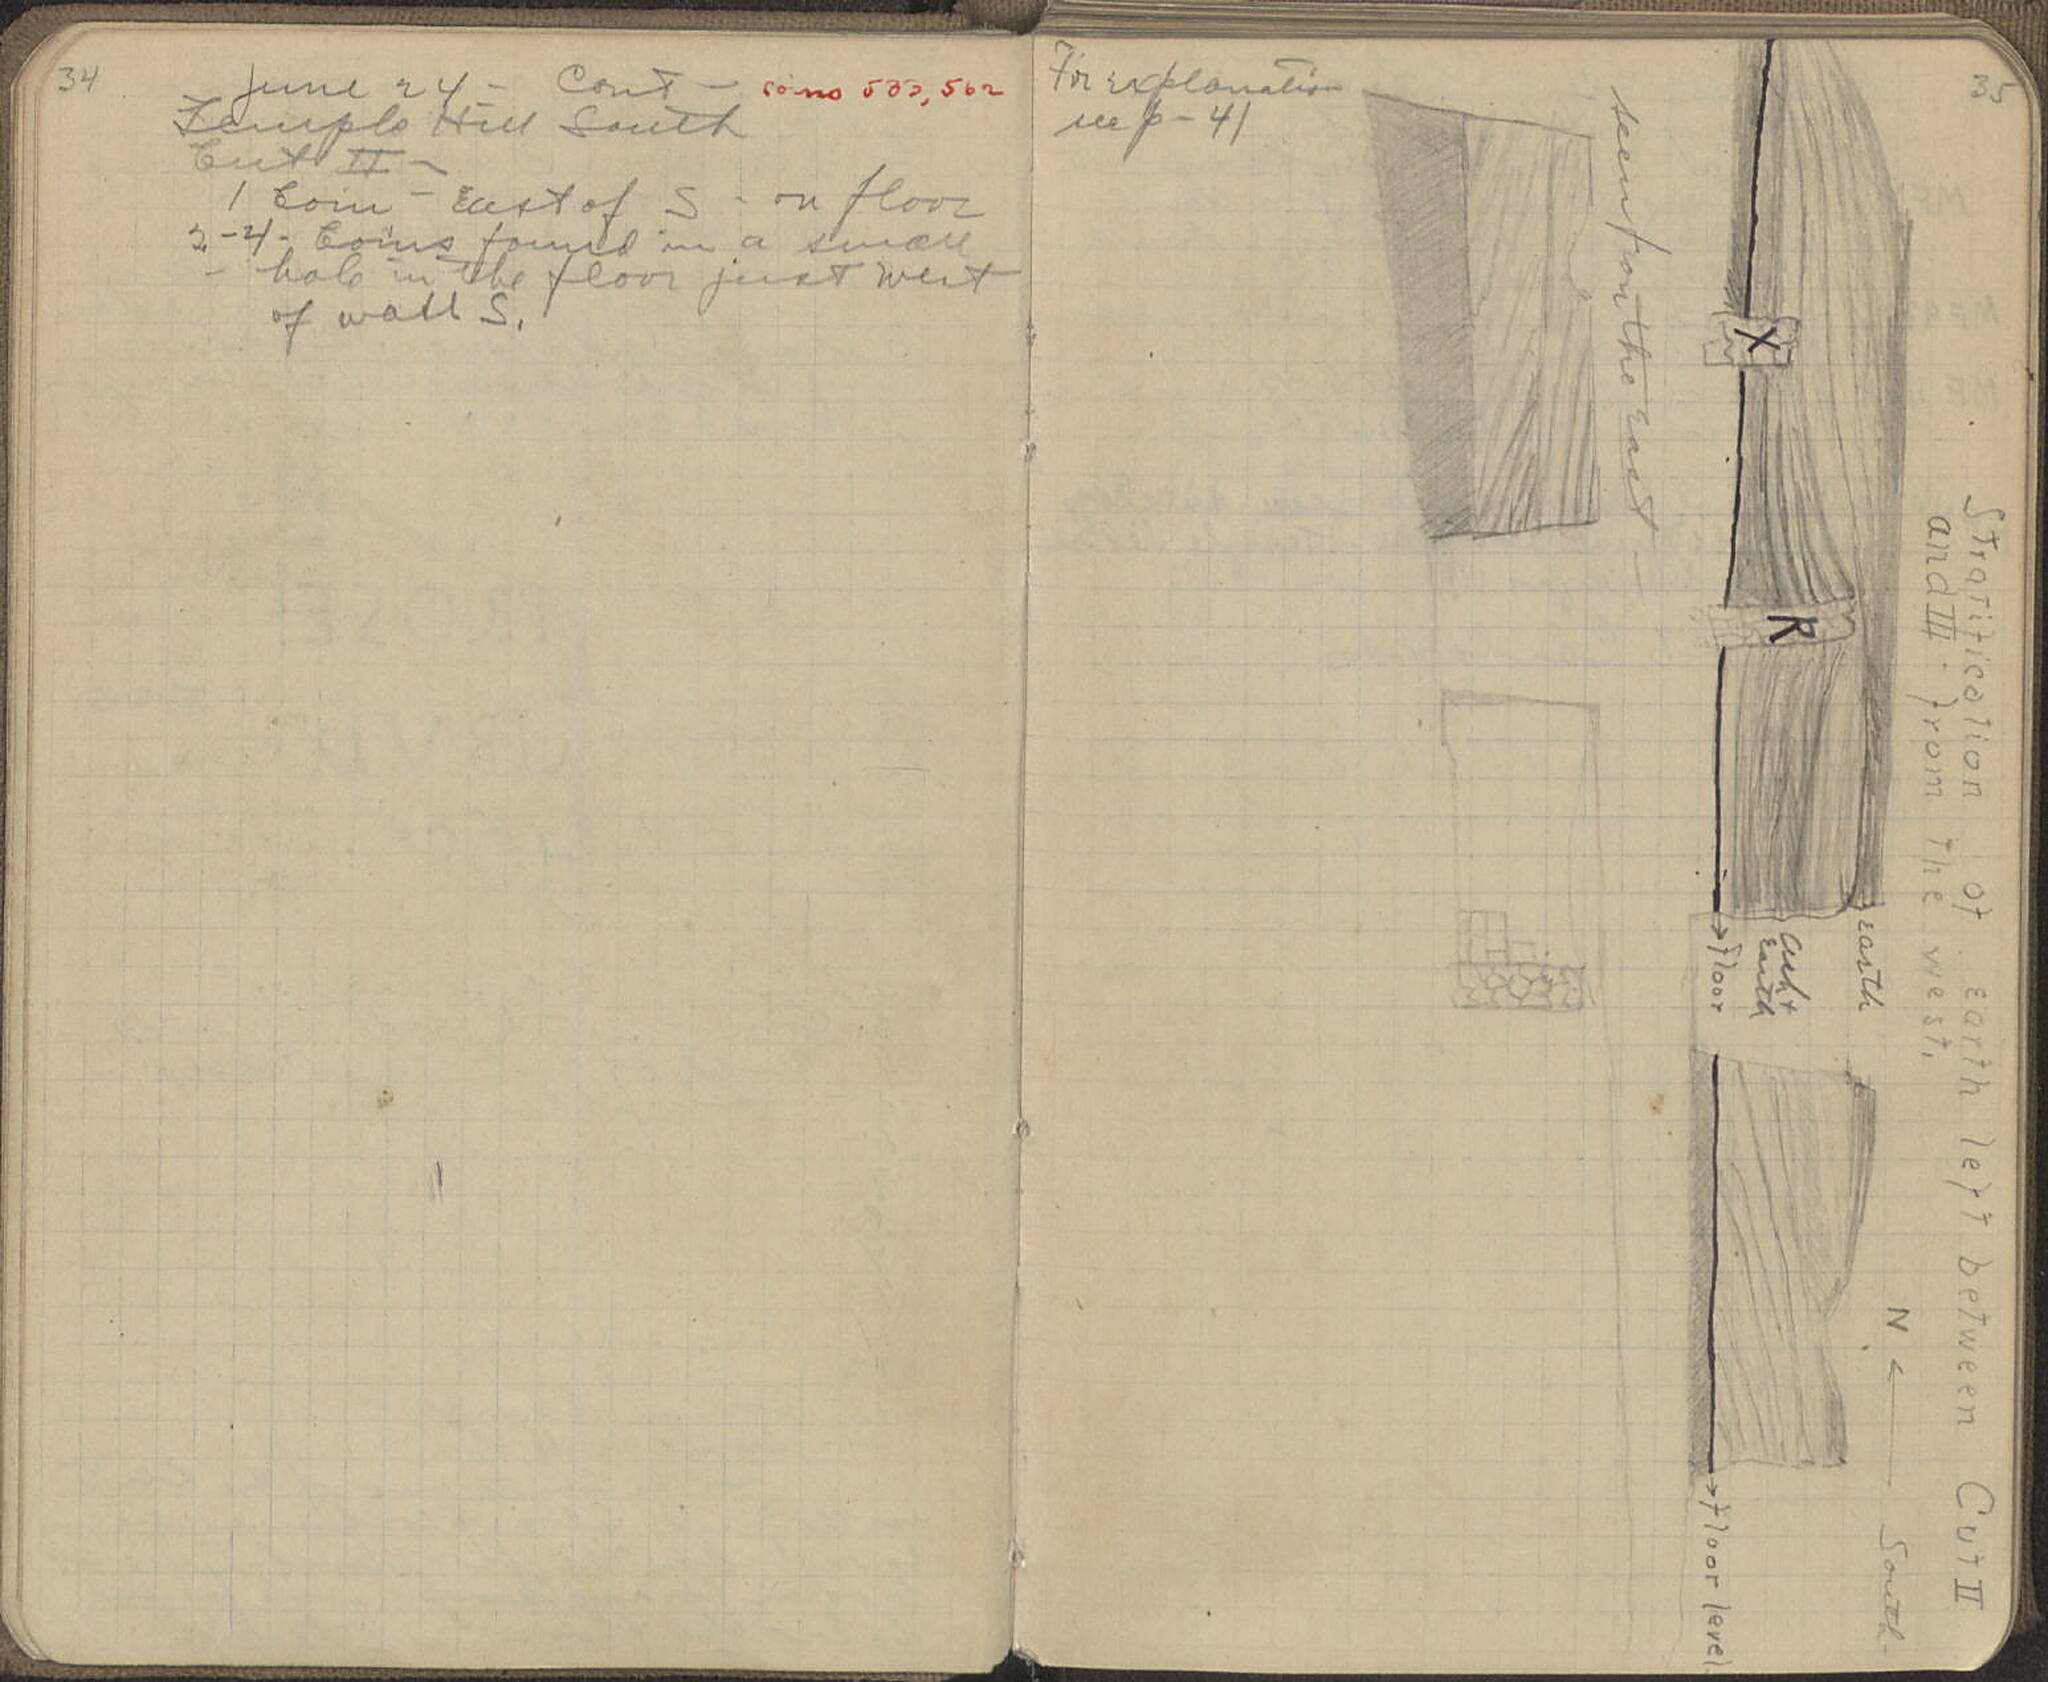 34
June 24 - Cont -
Temple Hill South
Cut II -
1 Coin - East of S - on floor
2-4- Coins found in a small
- hole in the floor just west
of wall S.
35
For explanation
see p - 41
seen from the East
X
R
floor
Ash + Earth
Earth
Stratification of Earth left between Cut II
and III from the west.
N
South
floor level